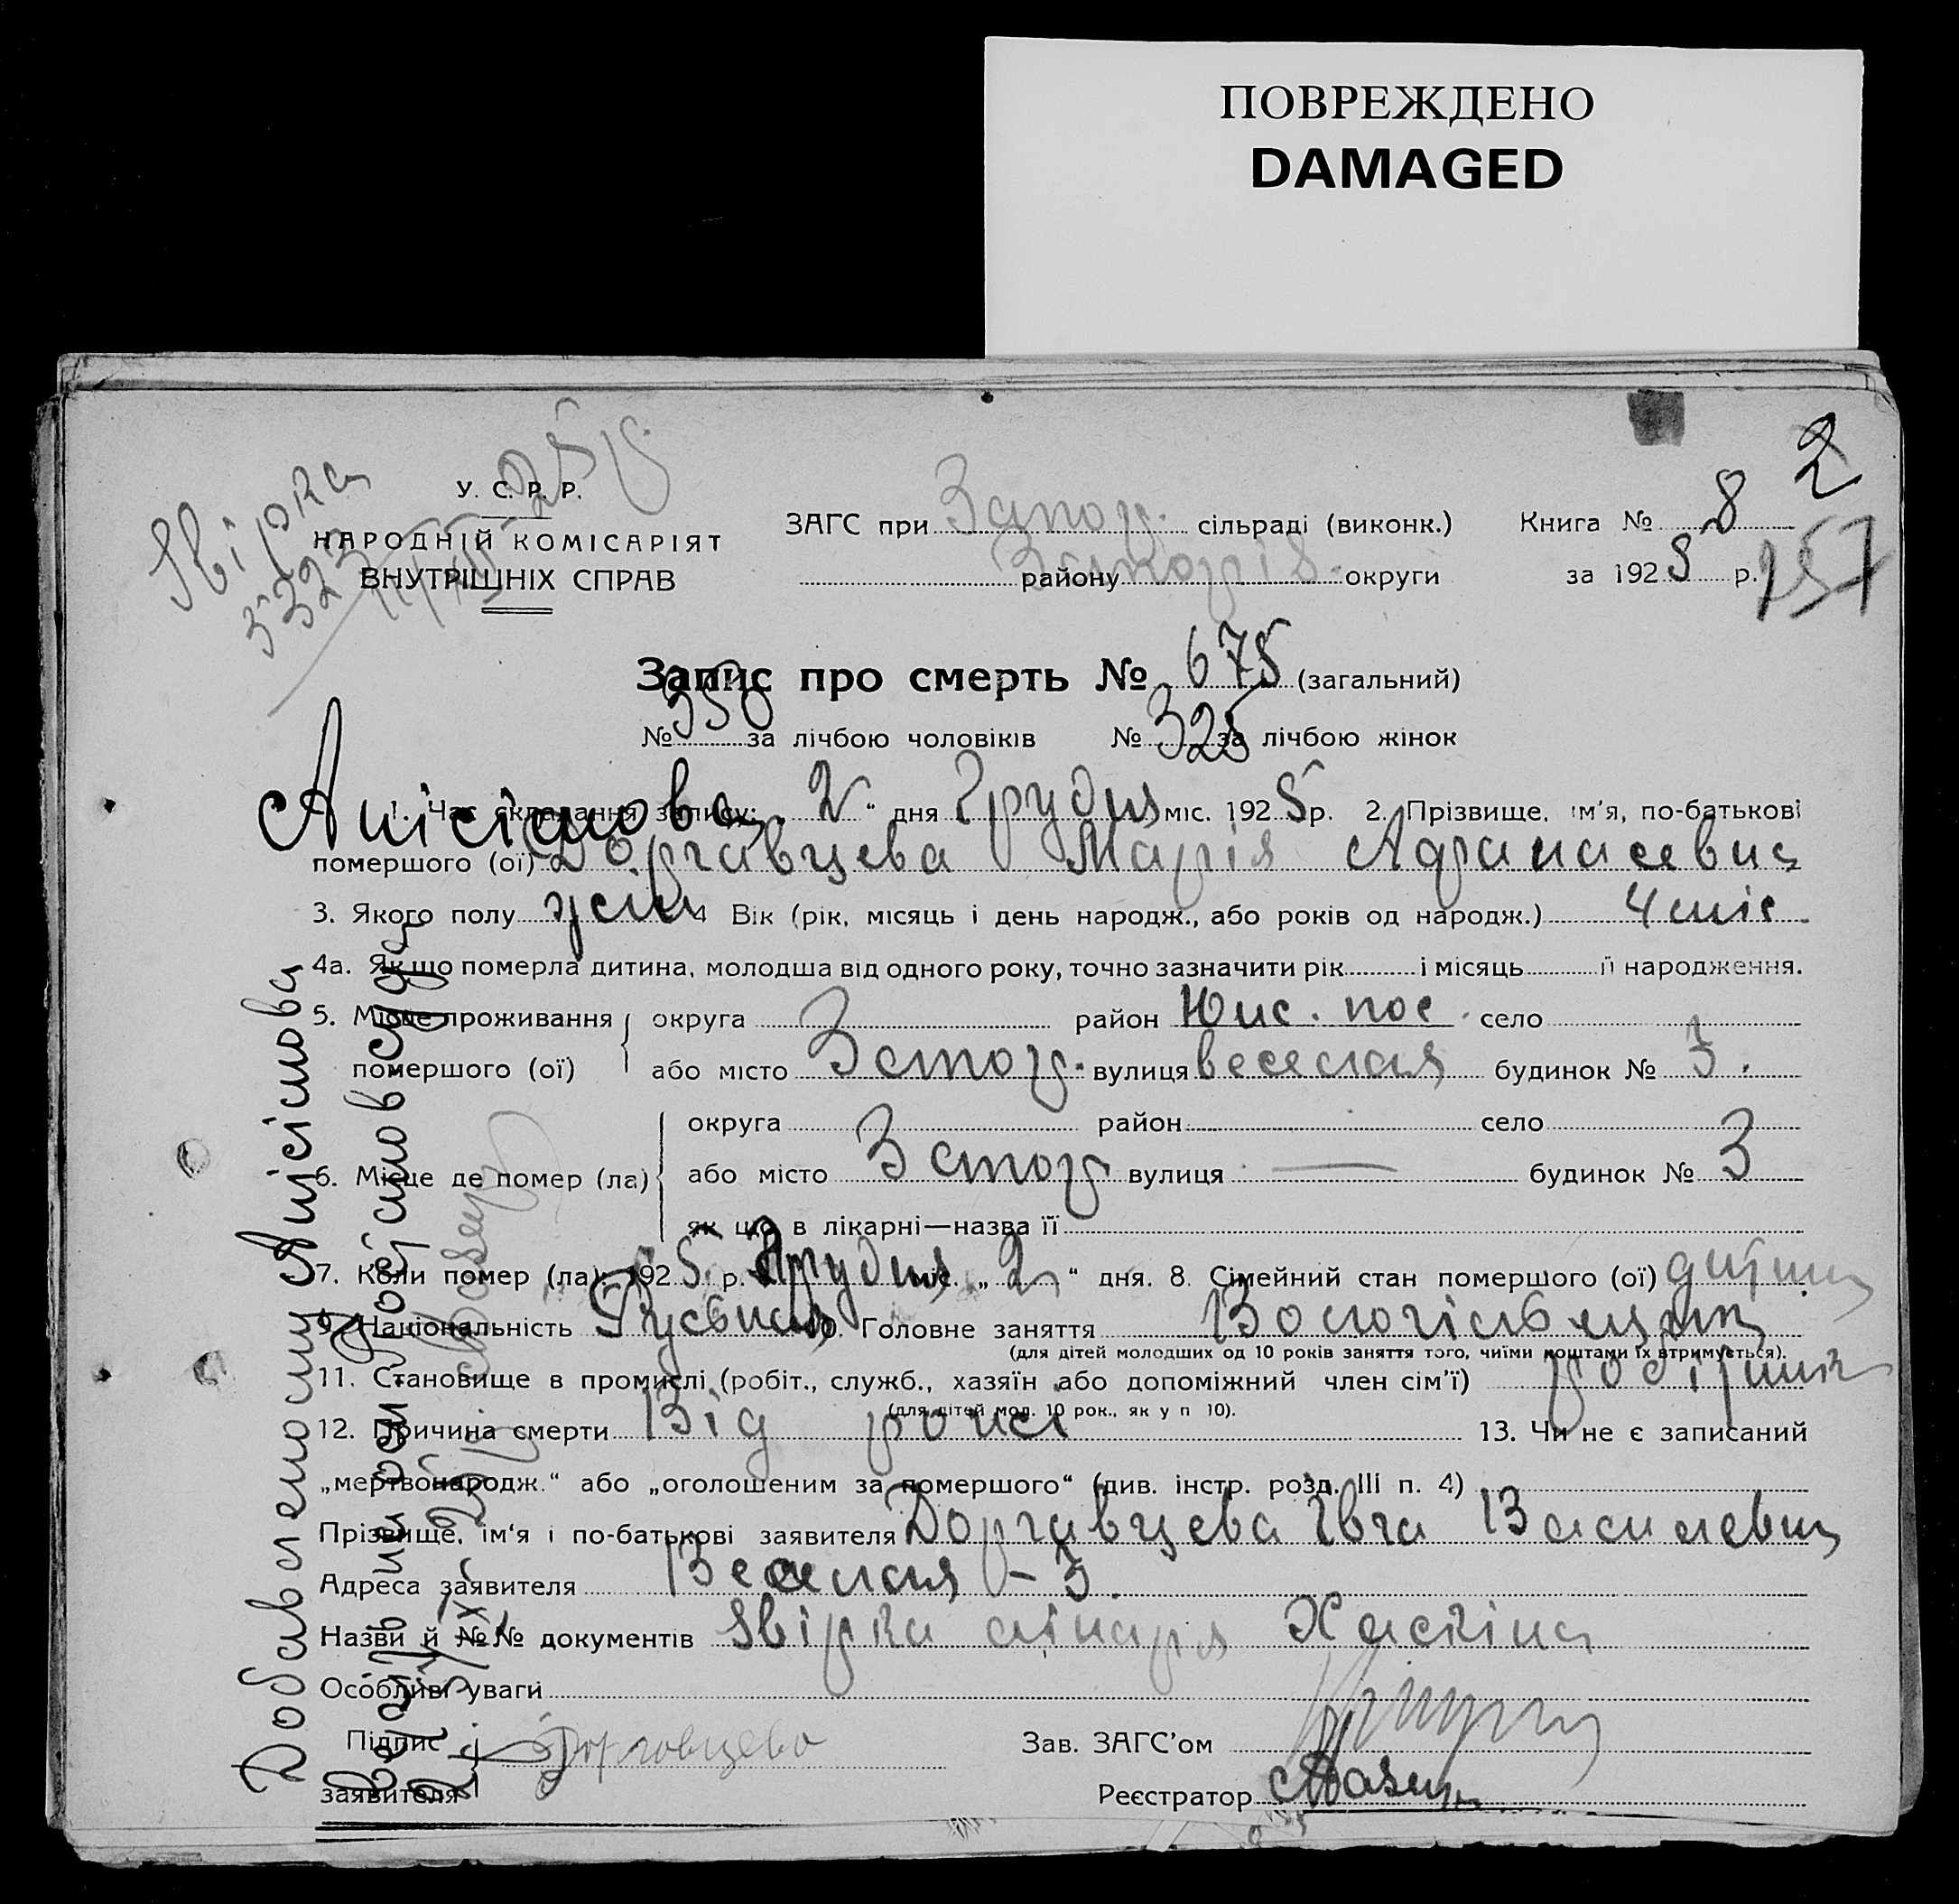 ПОВРЕЖДЕНО
DAMAGED
2
У. С. Р. Р.
НАРОДНІЙ КОМІСАРІЯТ
ВНУТРІШНІХ СПРАВ
ЗАГС при Запор. сільраді (виконк.)
району округи
Книга № 8
за 1925 р.
157
Звірка
3323
Запис про смерть № 675 (загальний)
№ 350 за лічбою чоловіків № 325 за лічбою жінок
Анісімова
1. Час складання запису: „2“ дня Грудня міс. 1925 р. 2. Прізвище, ім'я, по-батькові
помершого (ої) Доргавцева Марія Афанасевна
3. Якого полу жін 4 Вік (рік, місяць і день народж., або років од народж.) 4 міс.
4а. Якщо померла дитина, молодша від одного року, точно зазначити рік і місяць її народження.
5. Місце проживання помершого (ої) округа район Юж. пос. село
або місто Запор. вулиця Веселая будинок № 3.
6. Місце де помер (ла) округа район село
або місто Запор вулиця — будинок № 3
як що в лікарні—назва її
7. Коли помер (ла): 1925 р. Грудня міс. „2“ дня. 8. Сімейний стан помершого (ої) дитина
9. Національність Руська 10. Головне заняття
(для дітей молодших од 10 років заняття того, чиїми коштами їх втримується).
11. Становище в промислі (робіт., служб., хазяїн або допоміжний член сім'ї) робітник
(для дітей мол. 10 рок., як у п 10).
12. Причина смерти Від рожі 13. Чи не є записаний
„мертвонародж.“ або „оголошеним за помершого“ (див. інстр. розд. III п. 4)
Прізвище, ім'я і по-батькові заявителя Доргавцева Євга Василевна
Адреса заявителя Веселая – 3.
Назви й №№ документів Звірка лікаря Хаскіна
Особливі уваги
Підпис заявителя Дорговцева
Зав. ЗАГС'ом
Реєстратор
Добавленому Анісімова